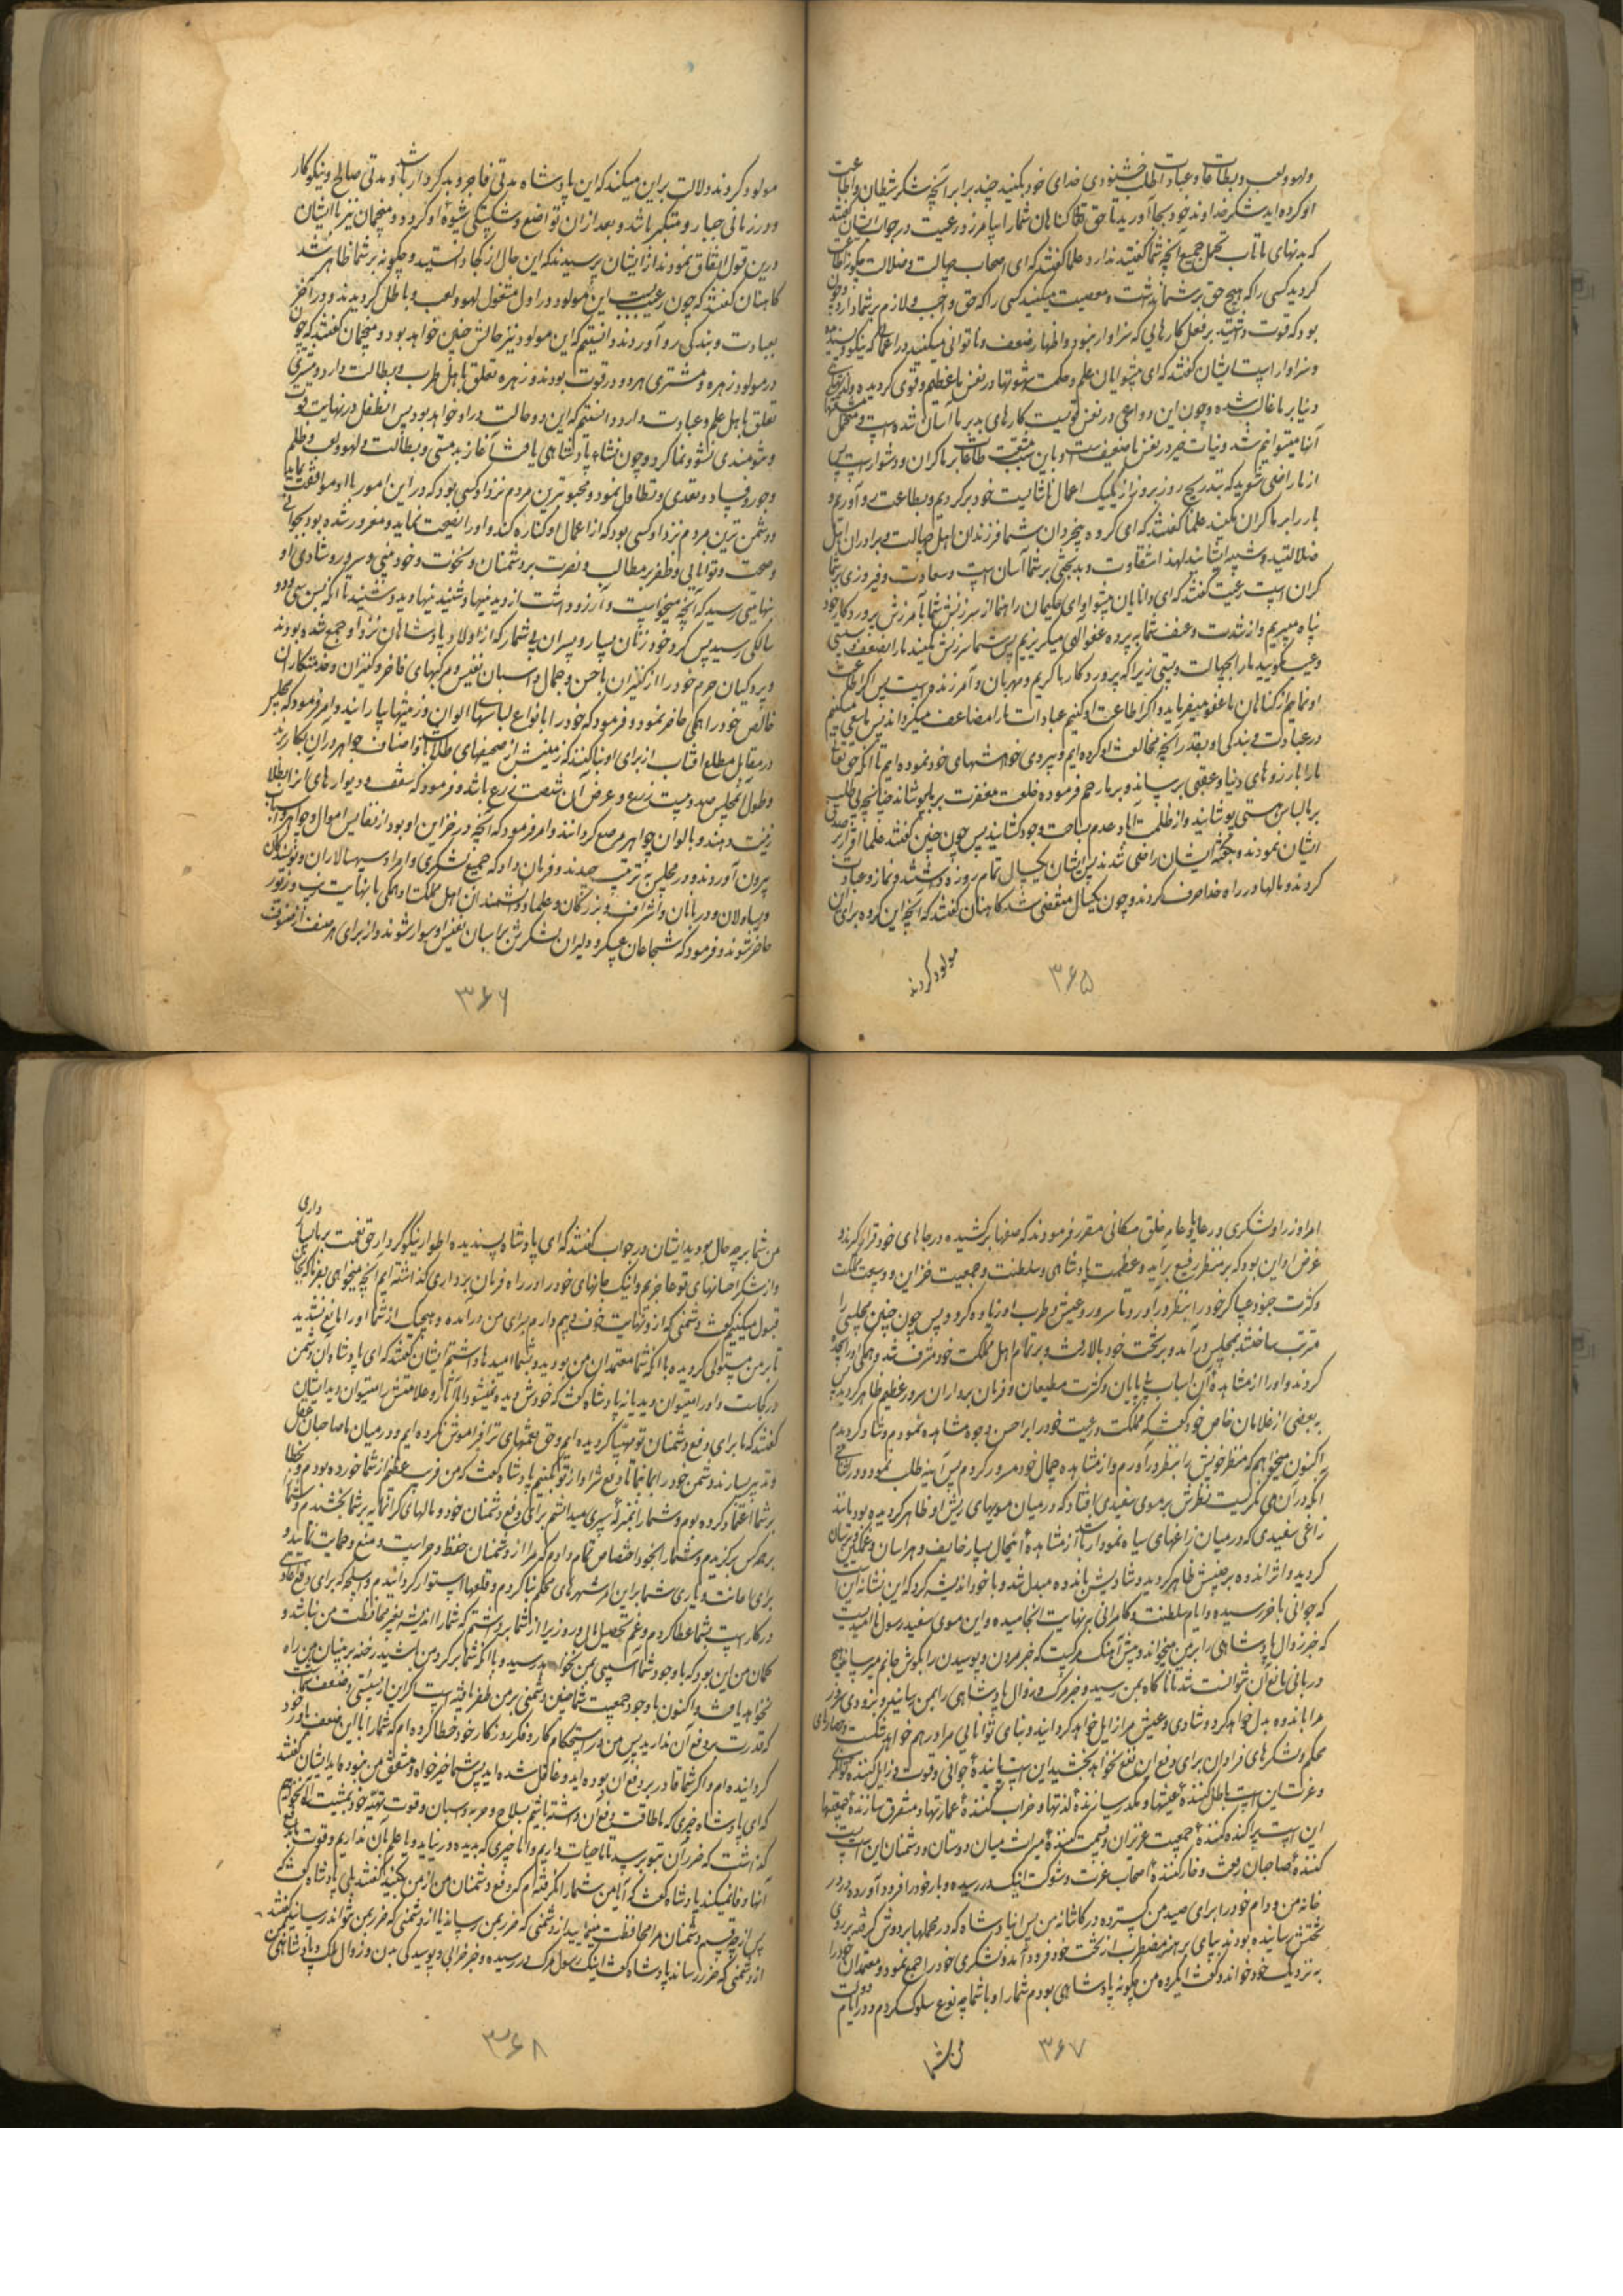 ولهو ولعب و بطالت و عبادات طلب خشنودی خدای خود بکنید چند برابر آنچه شکر شیطان و اطاعت
او کرده اید شکر خداوند خود بجا آورید تا حق تعالی گناهان شما را بیامرزد رعیت در جواب ایشان گفتند
که بدنهای ما تاب تحمل جمیع آنچه شما گفتید ندارد علما گفتند که ای اصحاب جهالت و ضلالت چگونه اطاعت
کردید کسی را که هیچ حق بر شما نداشت و معصیت میکنید کسی را که حق واجب و لازم بر شما دارد و چون
بود که قوت داشتید بر فعل کارهایی که سزاوار نبود و اظهار ضعف و ناتوانی میکنید در اعمالی که نیکو و پسندیده
و سزاوار است ایشان گفتند که ای پیشوایان علم و حکمت شهوتها در نفس ما عظیم و قوی گردیده و لذتهای
دنیا بر ما غالب شده و چون این دواعی در نفس ما قویست کارهای بد بر ما آسان شده است و متحمل مشقتهای
آنها میتوانیم شد و نیات خیر در نفس ما ضعیف است و باین سبب مشقت طاعات بر ما گران و دشوار است پس
از ما راضی شوید که بتدریج روز بروز از یکیک اعمال ناشایست خود برگردیم و بطاعت رو آوریم و
بار را بر ما گران مکنید علما گفتند که ای گروه بیخردان شما فرزندان اهل جهالت و برادران اهل
ضلالتید و شبیه ایشانید لهذا شقاوت و بدبختی بر شما آسان است و سعادت و فیروزی بر شما
گران است رعیت گفتند که ای دانایان پیشوا و ای حکیمان راهنما از سرزنش شما بآمرزش پروردگار خود
پناه میبریم و از شدت و عنف شما به پرده عفو الهی میگریزیم پس شما سرزنش مکنید ما را بضعف و سستی
و عیب مگویید ما را بجهالت و پستی زیرا که پروردگار ما کریم و مهربان و آمرزنده است پس اگر اطاعت
او نماییم گناهان ما عفو میفرماید و اگر اطاعت او کنیم عبادات ما را مضاعف میگرداند پس ما سعی میکنیم
در عبادت و بندگی او بقدر آنچه مخالفت او کرده ایم و پیروی خواهشهای خود نموده ایم تا آنکه حق تعالی
ما را بآرزوهای دنیا و عقبی برساند و بر ما رحم فرموده خلعت مغفرت بر ما بپوشاند چنانچه بی طلب
بر ما لباس هستی پوشانید و از ظلمت آباد عدم بساحت وجود کشانید پس چون چنین گفتند علما اقرار بر صدق
ایشان نمودند و بگفته ایشان راضی شدند پس ایشان یکسال تمام روزه داشتند و نماز و عبادت
کردند و مالها در راه خدا صرف کردند و چون یکسال منقضی شد کاهنان گفتند که آنچه این گروه برای این
مولود کردند
۳۶۵
مولود کردند دلالت بر این میکند که این پادشاه مدتی فاجر و بد کردار باشد و مدتی صالح و نیکوکار
و در زمانی جبار و متکبر باشد و بعد از آن تواضع و شکستگی شیوه او گردد و منجمان نیز با ایشان
درین قول اتفاق نمودند از ایشان پرسیدند که این حال از کجا دانستید و چگونه بر شما ظاهر شد
کاهنان گفتند که چون رعیت بسبب این مولود در اول مشغول لهو و لعب و باطل گردیدند و در آخر
بعبادت و بندگی رو آوردند دانستیم که این مولود نیز حالش چنین خواهد بود و منجمان گفتند که چون
در مولود زهره و مشتری هر دو در قوت بودند و زهره تعلق باهل طرب و بطالت دارد و مشتری
تعلق باهل علم و عبادت دارد دانستیم که این دو حالت در او خواهد بود پس آن طفل در نهایت قوت
و تنومندی نشو و نما کرد و چون نشاه پادشاهی یافت آغاز بدمستی و بطالت و لهو و لعب و ظلم
و جور و فساد و تعدی و تطاول نمود و محبوبترین مردم نزد او کسی بود که در این امور با او موافقت نماید
و دشمن ترین مردم نزد او کسی بود که از اعمال او کناره کند و او را نصیحت نماید و مغرور شده بود بجوانی
و صحت و توانایی و ظفر بر مطالب و نصرت بر دشمنان و نخوت و خودبینی و سرور و شادی او
بنهایتی رسید که آنچه میخواست و آرزو داشت از دیدنیها و شنیدنیها دید و شنید تا آنکه بسن سی و دو
سالگی رسید پس کرد خود زنان بسیار و پسران بی شمار که از اولاد پادشاهان نزد او جمع شده بودند
و پردگیان حرم خود را از کنیزان با حسن و جمال و اسبان نفیس و مرکبهای فاخر و کنیزان و خدمتکاران
خالص خود را همگی حاضر نمود و فرمود که خود را بانواع لباسهای الوان و زینتها بیارایند و امر فرمود که مجلس
در مقابل مطلع آفتاب از برای او بنا کنند که زمینش از صحیفهای طلا باشد و اصناف جواهر در آن بکار برند
و طول آن مجلس صد و بیست زرع و عرض آن شصت زرع باشد و فرمود که سقف و دیوارهای آنرا بطلا
زینت دهند و بالوان جواهر مرصع گردانند و امر فرمود که آنچه در خزاین او بود از نفایس اموال و جواهر و اسباب
بیرون آوردند و در مجلس به ترتیب چیدند و فرمان داد که جمیع لشکری و امرا و سپهسالاران و نویسندگان
و یساولان و دربانان و اشراف و بزرگان و علما و دانشمندان اهل مملکت او همگی با نهایت زیب و زیور
حاضر شوند و فرمود که شجاعان عسکر و دلیران لشکرش بر اسبان نفیس او سوار شوند و از برای هر صنف از صنوف
۳۶۶
امرا و زرا و لشکری و رعایا و عامه خلق مکانی مقرر فرمودند که صفها برکشیده در جاهای خود قرار گیرند و
غرض او این بود که بر منظر رفیع برآید و عظمت پادشاهی و سلطنت و جمعیت خزاین و وسعت مملکت
و کثرت جنود و عساکر خود را بنظر درآورد تا سرور و عیش و طرب او زیاده گردد پس چون چنین مجلسی را
مرتب ساختند بمجلس درآمد و بر تخت خود بالا رفت و بر تمام اهل مملکت خود مشرف شد و همگی او را سجده
کردند و او را از مشاهده آن اسباب بی پایان و کثرت مطیعان و فرمان برداران سرور عظیم ظاهر گردید پس
به بعضی از غلامان خاص خود گفت که مملکت و رعیت خود را بر احسن وجوه مشاهده نمودم و شاد گردیدم
اکنون میخواهم که منظر خویش را بنظر درآورم و از مشاهده جمال خود مسرور گردم پس آینه طلب نمود و در اثنای
آنکه در آن می نگریست نظرش بر موی سفیدی افتاد که در میان مویهای ریش او ظاهر گردیده بود مانند
زاغی سفیدی که در میان زاغهای سیاه نمودار باشد از مشاهده آنحال بسیار خایف و هراسان و غمگین و ترسان
گردید و اثر اندوه بر جبینش ظاهر گردید و شادیش باندوه مبدل شد و با خود اندیشه کرد که این نشانه اینست
که جوانی باخر رسید و ایام سلطنت و کامرانی به نهایت انجامیده و این موی سفید رسول ناامیدیست
که خبر زوال پادشاهی را بر من میخواند و پیش آهنگ مرگیست که خبر مردن و پوسیدن را بگوش جانم میرساند هیچ
دربانی مانع آن نتوانست شد تا ناگاه بمن رسید و خبر مرگ و زوال پادشاهی را بمن رسانید و بزودی سرور
مرا باندوه بدل خواهد کرد و شادی و عیش مرا زایل خواهد گردانید و بنای توانایی مرا درهم خواهد شکست و حصارهای
محکم و لشکرهای فراوان برای دفع آن نفع نخواهد بخشید این است رباینده جوانی و قوت و زایل کننده توانگری
و عزت این است باطل کننده عیشها و مکدر سازنده لذتها و خراب کننده عمارتها و متفرق سازنده جمعیتها
این است پراکنده کننده جمعیت عزیزان و قسمت کننده میراث میان دوستان و دشمنان این است پست
کننده صاحبان رفعت و خار کننده اصحاب عزت و شوکت اینک در رسیده و بار خود را فرود آورده در
خانه من و دام خود را برای صید من گسترده در کاشانه من پس آن پادشاه که در محملها بر دوش گرفته بر روی
تختش رسانیده بودند بپای برهنه مضطرب از تخت خود فرود آمد و لشکری خود را جمع نمود و معتمدان خود را
به نزدیک خود خواند و گفت ای گروه من چگونه پادشاهی بودم شما را و با شما چه نوع سلوک کردم و در ایام دولت
من شما
۳۶۷
داری
من شما بر چه حال بودید ایشان در جواب گفتند که ای پادشاه پسندیده اطوار نیکو کردار حق نعمت بر ما بسیار
و از شکر احسانهای تو عاجزیم و اینک جانهای خود را در راه فرمان برداری گذاشته ایم آنچه میخواهی بفرما که بجان
قبول میکنیم گفت دشمنی که از او نهایت خوف و بیم دارم برای من درآمده و هیچیک از شما او را مانع نشدید
تا بر من مستولی گردیده با آنکه شما معتمدان من بودید و بشما امیدها داشتم ایشان گفتند که ای پادشاه آن دشمن
در کجاست و او را میتوان دید یا نه پادشاه گفت که خودش دیده نمیشود اما آثار و علامتش را میتوان دید ایشان
گفتند که ما برای دفع دشمنان تو مهیا گردیده ایم و حق نعمتهای ترا فراموش نکرده ایم و در میان ما صاحبان عقل
و تدبیر بسیارند دشمن خود را بما نما تا دفع شر او از تو بکنیم پادشاه گفت که من فریب عظیم از شما خورده بودم و بخطا
بر شما اعتماد کرده بودم و شما را بمنزله سپری میدانستم برای دفع دشمنان خود و مالهای گرانمایه بر شما بخشیدم و شما را
بر همه کس برگزیدم و شما را بخود اختصاص تمام دادم که مرا از دشمنان حفظ و حراست و منع و حمایت نمایید و
برای اعانت و یاری شما بر این امر شهرهای محکم بنا کردم و قلعها استوار گردانیدم و اسلحه که برای دفع اعادی
در کار است بشما عطا کردم و غم تحصیل مال و روزی را از شما برداشتم که شما را اندیشه بغیر محافظت من نباشد و
گمان من این بود که با وجود شما آسیبی بمن نخواهد رسید و با آنکه شما بر گرد من باشید رخنه بر بنیان من راه
نخواهد یافت و اکنون با وجود جمعیت شما چنین دشمنی بر من ظفر یافته است اگر این از سستی و ضعف شماست
که قدرت بر دفع آن ندارید پس من در استحکام کار و فکر روزگار خود خطا کرده ام که شما را با این ضعف یاور خود
گردانیده ام و اگر شما قادر بر دفع آن بوده اید و غافل شده اید پس شما خیرخواه و مشفق من نبوده اید ایشان گفتند
که ای پادشاه چیزی که ما طاقت دفع آن داشته باشیم بسلاح و حربه و اسبان و قوت تهیه خود بمشیت الهی نخواهیم
گذاشت که ضرر آن بتو برسد تا ما حیات داریم و اما چیزی که بدیده در نیاید و ما علم بآن نداریم و قوت ما بدفع
آنها وفا نمیکند پادشاه گفت که آیا من شما را نگرفته ام که دفع دشمنان من از من بکنید گفتند بلی پادشاه گفت که
پس از چه قسم دشمنان مرا محافظت مینمایید از دشمنی که ضرر بمن رساند یا از دشمنی که ضرر بمن نتواند رسانید گفتند
از دشمنی که ضرر رساند پادشاه گفت اینک رسول مرگ در رسیده و خبر خرابی و پوسیدگی بدن و زوال ملک و پادشاهی من
۳۶۸